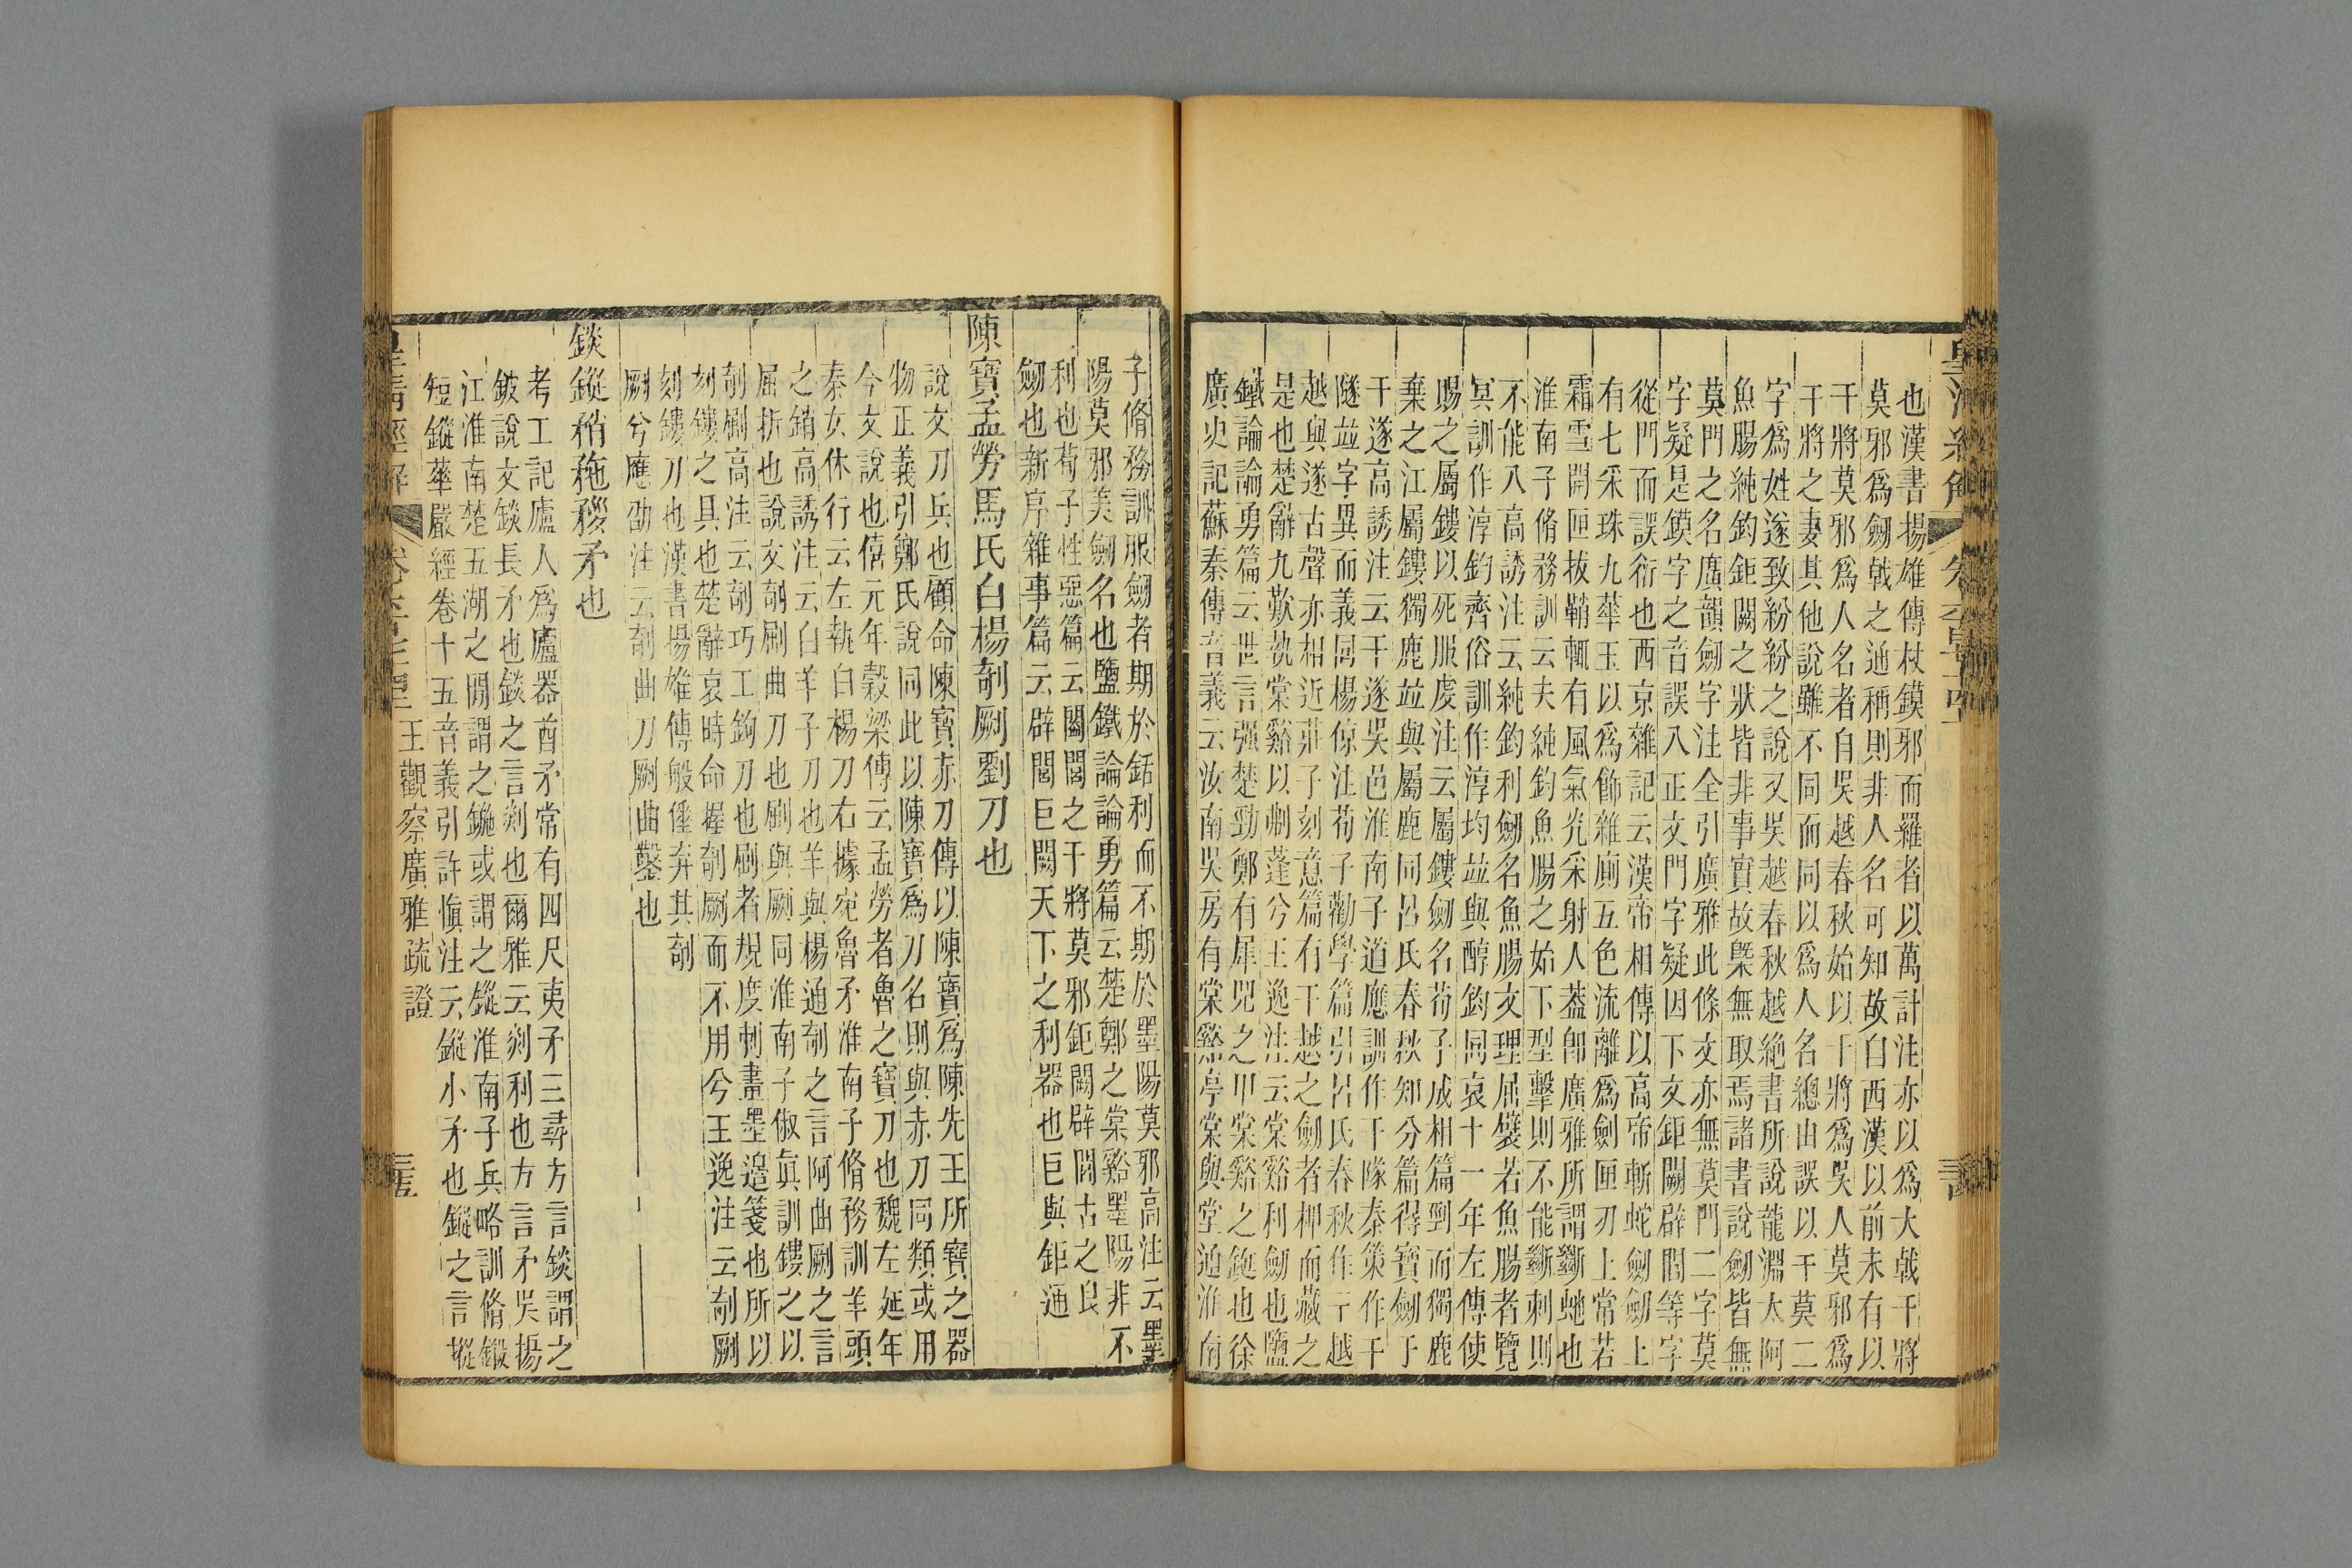 皇清經解
也漢書揚雄傳杖鏌邪而羅者以萬計注亦以爲大戟干將
莫邪爲劒戟之通稱則非人名可知故自西漢以前未有以
干將莫邪爲人名者自吳越春秋始以干將爲吳人莫邪爲
干將之妻其他說雖不同而同以爲人名總由誤以干莫二
字爲姓遂致紛紛之說又吳越春秋越絶書所說龍淵太阿
魚腸純鈞鉅闕之狀皆非事實故槩無取焉諸書說劒皆無
莫門之名廣韻劒字注全引廣雅此條文亦無莫門二字莫
字疑是鏌字之音誤入正文門字疑因下文鉅闕辟閭等字
從門而誤衍也西京雜記云漢帝相傳以高帝斬蛇劒劒上
有七采珠九華玉以爲飾雜廁五色流離爲劍匣刃上常若
霜雪開匣拔鞘輒有風氣光采射人葢卽廣雅所謂斷蛇也
淮南子脩務訓云夫純鈞魚腸之始下型擊則不能斷刺則
不能入高誘注云純鈞利劒名魚腸文理屈襞若魚腸者覽
冥訓作淳鈞齊俗訓作淳均竝與醇鈞同哀十一年左傳使
賜之屬鏤以死服虔注云屬鏤劒名荀子成相篇剄而獨鹿
棄之江屬鏤獨鹿竝與屬鹿同呂氏春秋知分篇得寶劒于
干遂高誘注云干遂吳邑淮南子道應訓作干隊秦策作干
隧竝字異而義同楊倞注荀子勸學篇引呂氏春秋作干越
越與遂古聲亦相近莊子刻意篇有干越之劒者柙而藏之
是也楚辭九歎執棠谿以刜蓬兮王逸注云棠谿利劒也鹽
鐵論論勇篇云世言强楚勁鄭有犀兕之甲棠谿之鋌也徐
廣史記蘇秦傳音義云汝南吳房有棠谿亭棠與堂通淮南
子脩務訓服劒者期於銛利而不期於墨陽莫邪高注云墨
陽莫邪美劒名也鹽鐵論論勇篇云楚鄭之棠谿墨陽非不
利也荀子性惡篇云闔閭之干將莫邪鉅闕辟閭古之良
劒也新序雜事篇云辟閭巨闕天下之利器也巨與鉅通
陳寶孟勞馬氏白楊剞劂劉刀也
說文刀兵也顧命陳寶赤刀傳以陳寶爲陳先王所寶之器
物正義引鄭氏說同此以陳寶爲刀名則與赤刀同類或用
今文說也僖元年穀梁傳云孟勞者魯之寶刀也魏左延年
秦女休行云左執白楊刀右據宛魯矛淮南子脩務訓羊頭
之銷高誘注云白羊子刀也羊與楊通剞之言阿曲劂之言
屈折也說文剞劂曲刀也劂與劂同淮南子俶眞訓鏤之以
剞劂高注云剞巧工鉤刀也劂者規度刺畫墨邉箋也所以
刻鏤之具也楚辭哀時命握剞劂而不用兮王逸注云剞劂
刻鏤刀也漢書揚雄傳般倕弃其剞
劂兮應劭注云剞曲刀劂曲鑿也
錟鏦矟䂠䅔矛也
考工記廬人爲廬器酋矛常有四尺夷矛三尋方言錟謂之
鈹說文錟長矛也錟之言剡也爾雅云剡利也方言矛吳揚
江淮南楚五湖之閒謂之鍦或謂之鏦淮南子兵略訓脩鎩
短鏦華嚴經卷十五音義引許愼注云鏦小矛也鏦之言摐
皇清經解
王觀察廣雅疏證